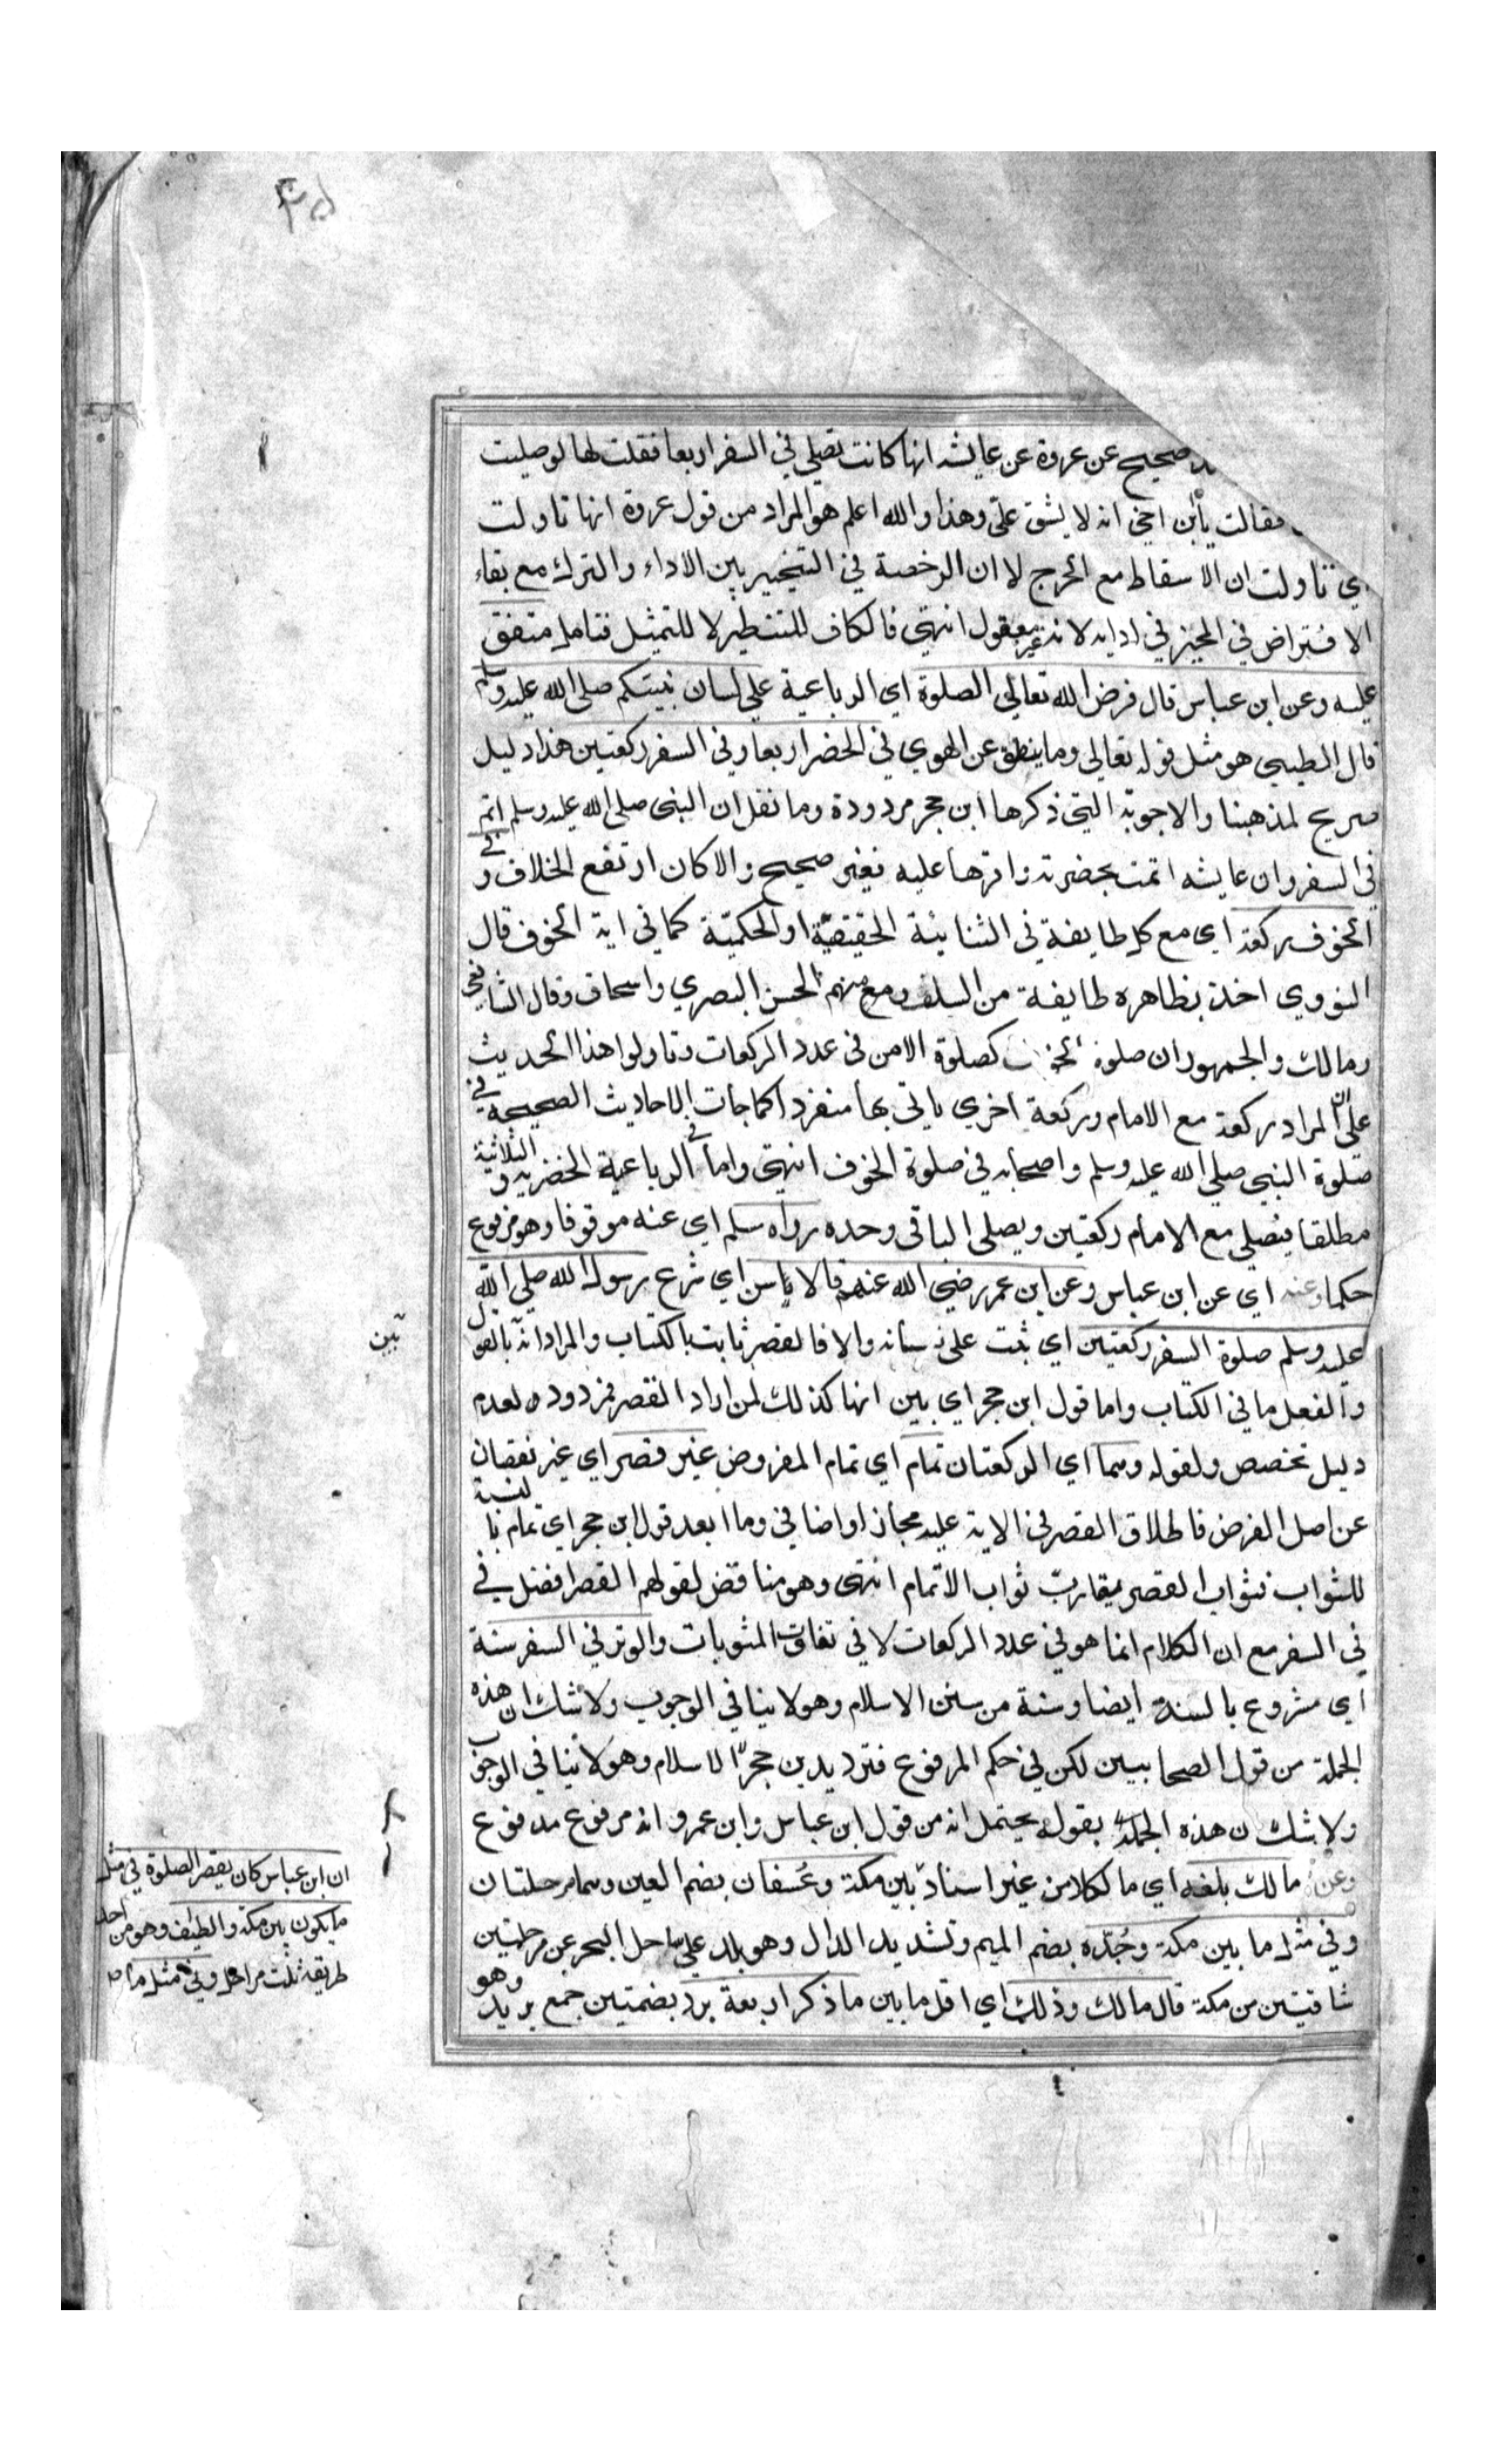 صحيح عن عروة عن عايشه انها كانت تصلي في السفر اربعا فقلت لها لو صليت
فقالت يا بن اختي انه لا يشق علي وهذا والله اعلم هو المراد من قول عروة انها تاولت
اي تاولت ان الاسقاط مع الحرج لا ان الرخصة في التخيير بين الاداء والترك مع بقاء
الافتراض في المخير في ادايه لانه غير معقول انتهى فالكاف للتنظير لا للتمثيل فتامل متفق
عليه وعن ابن عباس قال فرض الله تعالى الصلوة اي الرباعية على لسان نبيكم صلى الله عليه وسلم
قال الطيبي هو مثل قوله تعالى وما ينطق عن الهوي في الحضر اربعا وفي السفر ركعتين هذا دليل
صريح لمذهبنا والاجوبة التي ذكرها ابن حجر مردودة وما نقل ان النبي صلى الله عليه وسلم اتم
في السفر وان عايشه اتمت بحضرته واقرها عليه فغير صحيح والا كان ارتفع الخلاف وفي
الخوف ركعة اي مع كل طايفة في الثنائية الحقيقية او الحكمية كما في اية الخوف قال
النووي اخذ بظاهره طايفة من السلف منهم الحسن البصري واسحاق وقال الشافعي
ومالك والجمهور ان صلوة الخوف كصلوة الامن في عدد الركعات وتاولوا هذا الحديث
على ان المراد ركعة مع الامام وركعة اخري ياتي بها منفردا كما جات الاحاديث الصحيحة في
صلوة النبي صلى الله عليه وسلم واصحابه في صلوة الخوف انتهى واما في الرباعية الحضرية والثلاثية
مطلقا فيصلي مع الامام ركعتين ويصلى الباقي وحده رواه مسلم اي عنه موقوفا وهو مرفوع
حكما وعنه اي عن ابن عباس وعن ابن عمر رضي الله عنهم قالا ياسن اي شرع رسول الله صلى الله
عليه وسلم صلوة السفر ركعتين اي ثبت على لسانه والا فالقصر ثابت بالكتاب والمراد انه بالقول
تبين
والفعل ما في الكتاب واما قول ابن حجر اي بين انها كذلك لمن اراد القصر فمردود لعدم
دليل تخصص ولقوله وهما اي الركعتان تمام اي تمام المفروض غير قصر اي غير نقصان
عن اصل الفرض فاطلاق القصر في الاية عليه مجاز او اضافي وما ابعد قول ابن حجر اي تمام بالنسبة
للثواب فثواب القصر يقارب ثواب الاتمام انتهى وهو مناقض لقولهم القصر افضل في
في السفر مع ان الكلام انما هو في عدد الركعات لا في تفاوت المثوبات والوتر في السفر سنة
اي مشروع بالسنة ايضا وسنة من سنن الاسلام وهو لا ينافي الوجوب ولا شك ان هذه
الجملة من قول الصحابيين لكن في حكم المرفوع فترديد بن حجر الاسلام وهو لا ينافي الوجوب
ولا شك ن هذه الجملة بقوله يحتمل انه من قول ابن عباس وابن عمر وانه مرفوع مدفوع
وعن مالك بلغه اي مالكا من غير اسناد بين مكة وعسفان بضم العين وهما مرحلتان
وفي مثل ما بين مكة وجدة بضم الميم وتشديد الدال وهو بلد على ساحل البحر عن مرحلتين
شاقتين من مكة قال مالك وذلك اي اقل ما بين ما ذكر اربعة برد بضمتين جمع بريد وهو
ان ابن عباس كان يقصر الصلوة في مثل
ما يكون بين مكة والطائف وهو من احد
طريقه ثلث مراحل وفي مثل ما